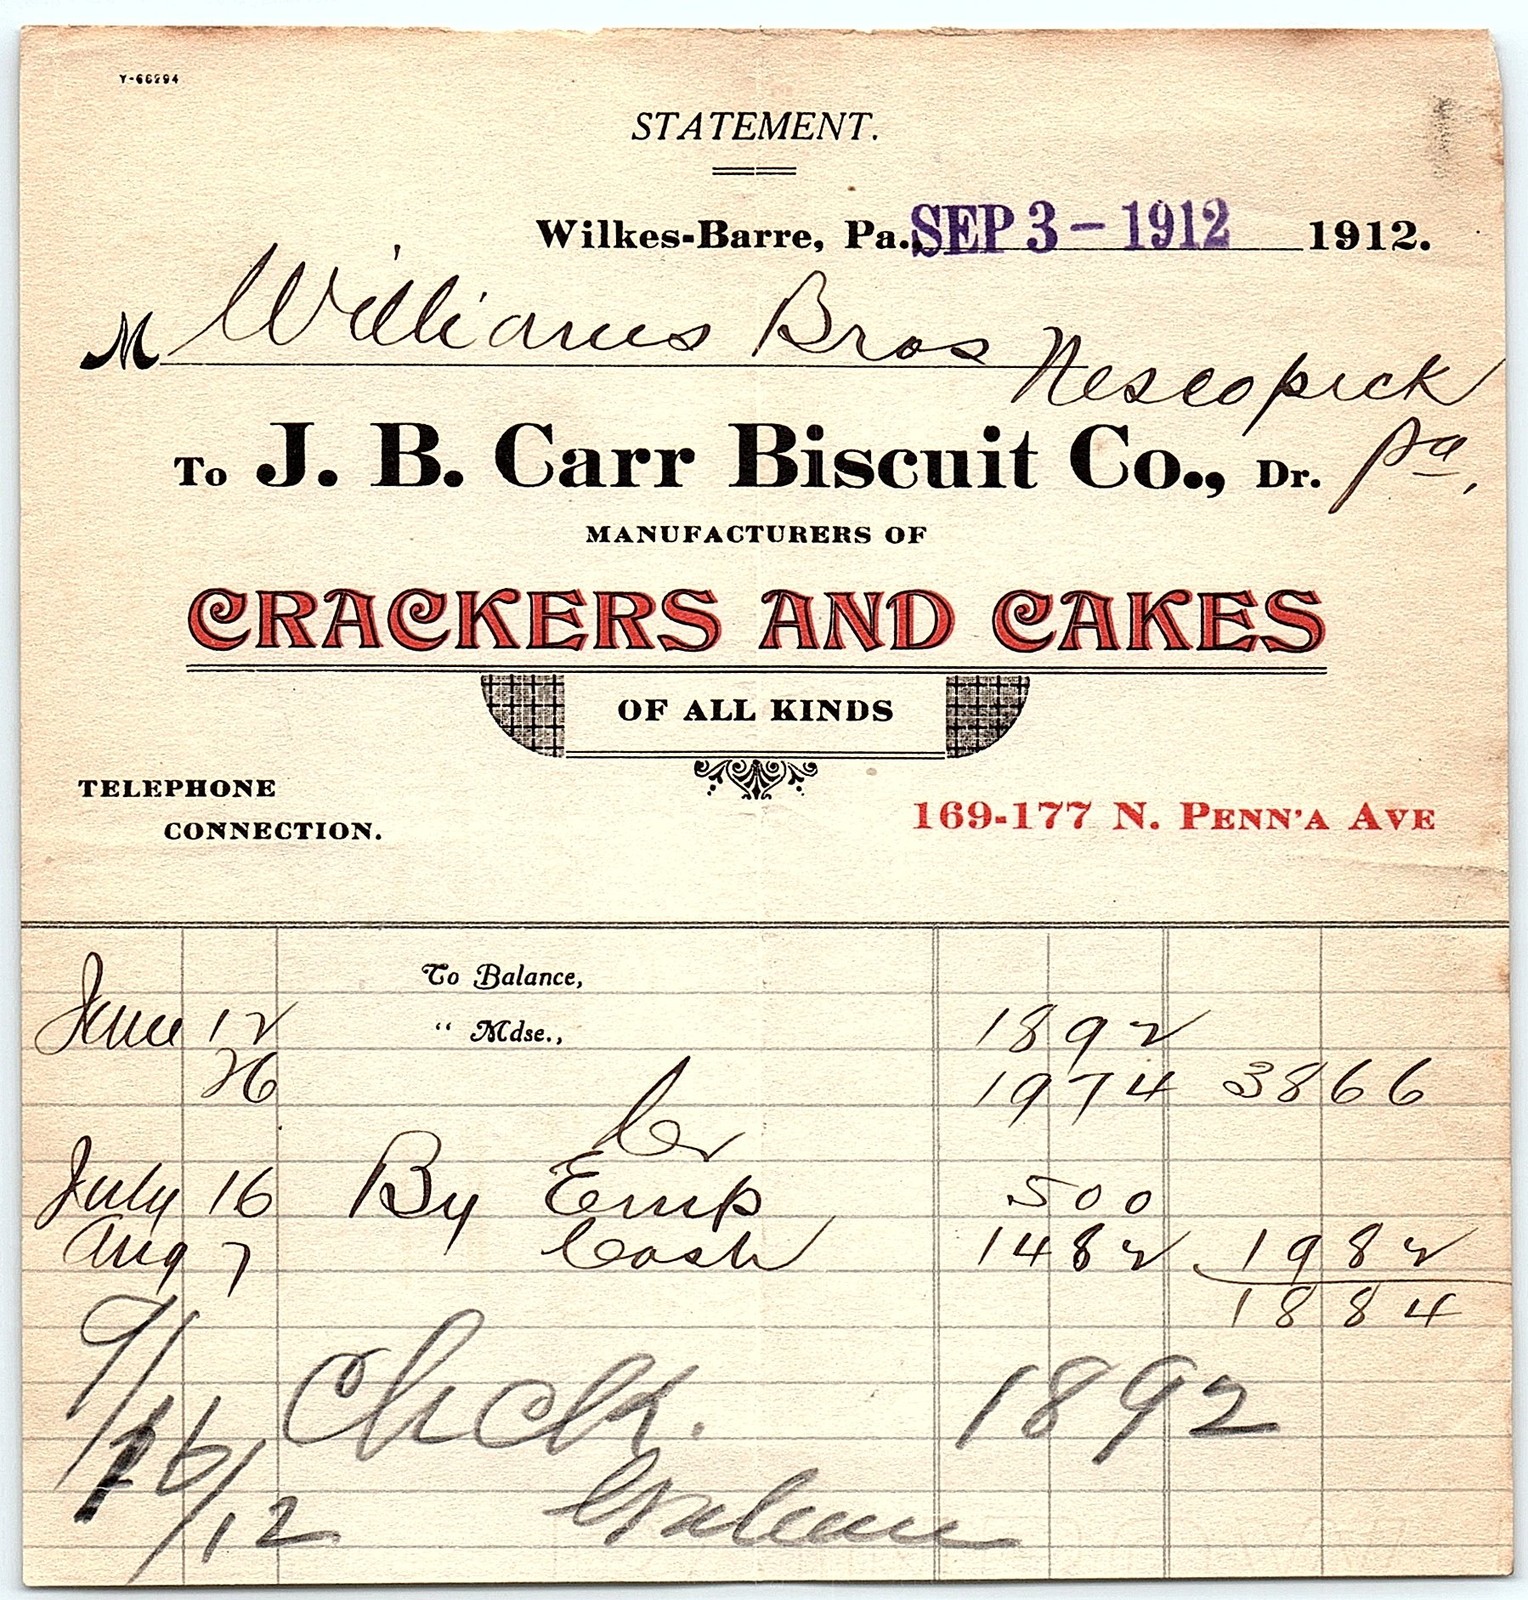 Y-66294
STATEMENT.
Wilkes-Barre, Pa., SEP 3 - 1912 1912.
M Williams Bros Nescopeck
Pa.
To J. B. Carr Biscuit Co., Dr.
MANUFACTURERS OF
CRACKERS AND CAKES
OF ALL KINDS
TELEPHONE
CONNECTION.
169-177 N. PENN'A AVE
To Balance,
June 12 " Mdse., 1892
26 1974 3866
Cr
July 16 By Emp 500
Aug 7 Cash 1482 1982
1884
9/16/12 Check. 1892